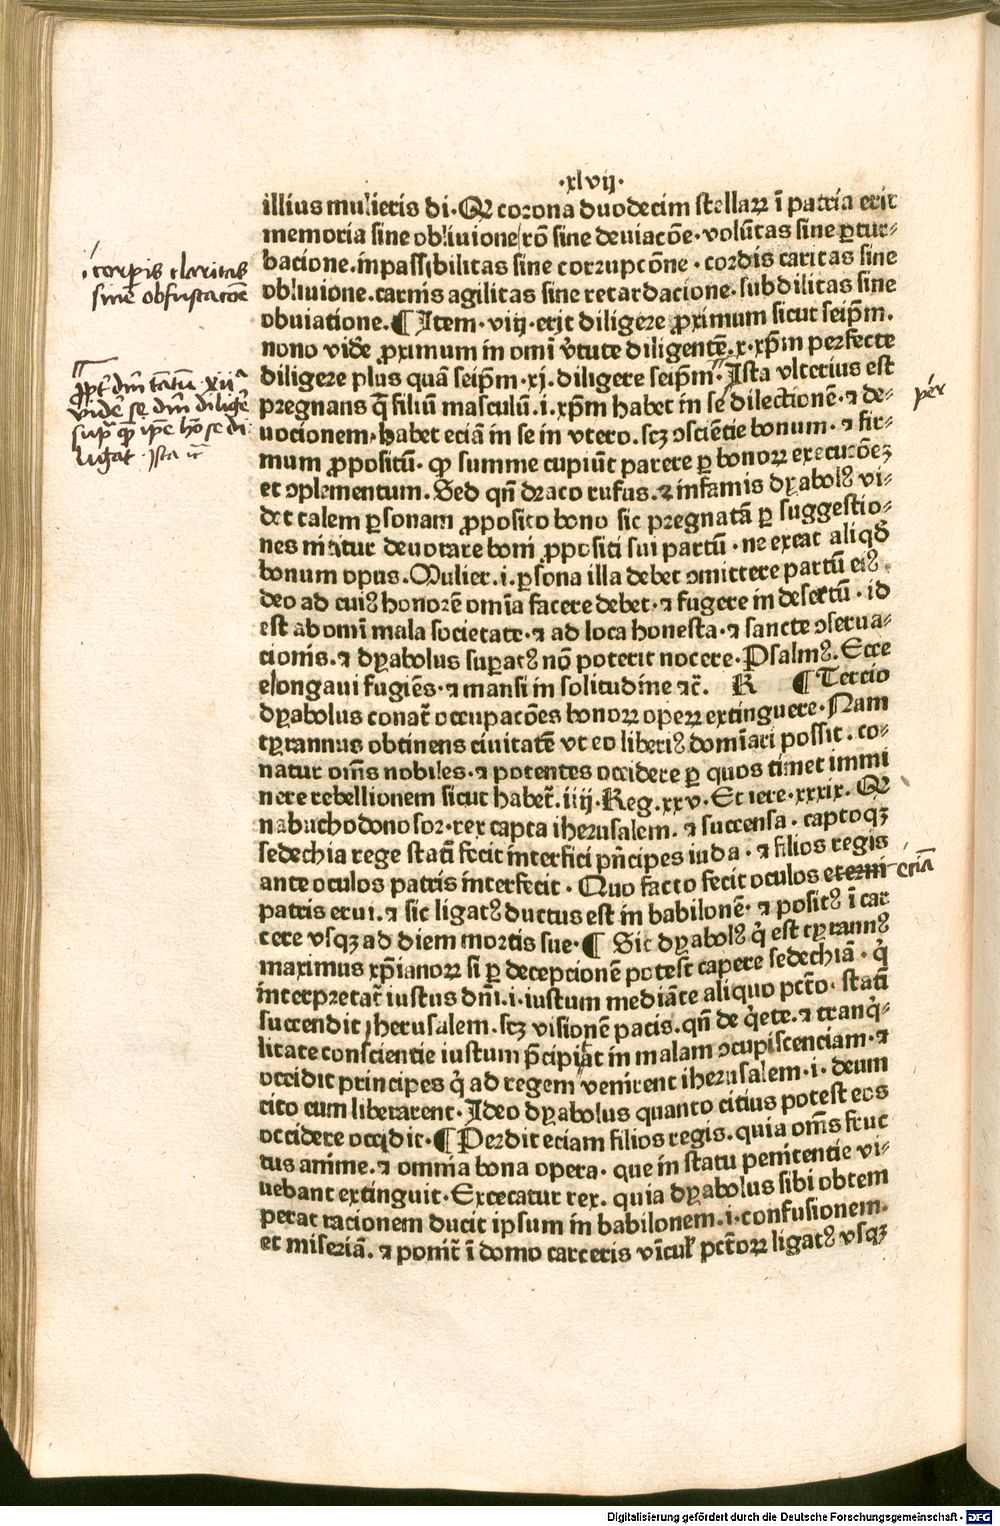 ·xlvij·
illius mulieris di·Q corona duodecim stellaꝝ ī patria erit
memoria sine obliuione rō sine deuiacōe·volūtas sine ꝑtur⸗
bacione.inpassibilitas sine corrupcōne·cordis caritas sine
obliuione.carnis agilitas sine retardacione·subdilitas sine
obuiatione.¶ Item·viij·erit diligere ꝓximum sicut seipm̄.
nono videē ꝓximum in omī v̄tute diligentē.x·xp̄m perfecte
diligere plus quā seipm̄·xj.diligere seipm̄·Ista vlterius est
pregnans q̄ filiū masculū.i.xp̄m habet in se dilectionē·⁊ de⸗
uocionem·habet eciā in se in vtero.scꝫ ↄsciētie bonum·⁊ fir⸗
mum ꝓpositū·ꝙ summe cupiūt parere ꝑ bonoꝝ execucōeꝫ
et ↄplementum.Sed qn̄ draco rufus.⁊ infamis dyabolꝰ vi⸗
det talem ꝑsonam ꝓposito bono sic pregnatā ꝑ suggestio⸗
nes nititur deuorare boni ꝓpositi sui partū·ne exeat aliqd̄
bonum opus.Mulier.i.ꝑsona illa debet ↄmittere partū eiꝰ
deo ad cuiꝰ honorē omīa facere debet·⁊ fugere in desertū·id
est ab omī mala societate·⁊ ad loca honesta·⁊ sancte ↄserua⸗
cionis.⁊ dyabolus suꝑatꝰ nō poterit nocere·Psalmꝰ.Ecce
elongaui fugiēs·⁊ mansi in solitudine ⁊c̄. R ¶ Tercio
dyabolus conat̄ occupacōes bonoꝝ opeꝝ extinguere·Nam
tyrannus obtinens ciuitatē vt eo liberiꝰ domīari possit.co⸗
natur om̄s nobiles·⁊ potentes occidere ꝑ quos timet immi
nere rebellionem sicut habet̄.iiij·Reg.xxv·Et iere·xxxix.Q
nabuchodonosor·rex capta iherusalem.⁊ succensa·captoqꝫ
sedechia rege statī fecit interfici pn̄cipes iuda·⁊ filios regis
ante oculos patris interfecit·Quo facto fecit oculos eterni
patris erui.⁊ sic ligatꝰ ductus est in babilonē·⁊ positꝰ ī car
cere vsqꝫ ad diem mortis sue·¶ Sic dyabolꝰ q̇ est tyrannꝰ
maximus xp̄ianoꝝ si ꝑ decepcionē potest capere sedechiā·q̇
interpretat̄ iustus dn̄i.i·iustum mediāte aliquo pctō·statī
succendit jherusalem.scꝫ visionē pacis.qn̄ de q̇ete.⁊ tranq̇⸗
litate conscientie iustum p̄cipitat in malam ↄcupiscenciam·⁊
occidit principes q̇ ad regem venirent iherusalem·i·deum
cito eum liberarent·Ideo dyabolus quanto citius potest eos
occidere occidit·¶ Perdit eciam filios regis.quia om̄s fruc
tus anime.⁊ omnia bona opera·que in statu penitentie vi⸗
uebant extinguit·Excecatur rex.quia dyabolus sibi obtem
perat racionem ducit ipsum in babilonem.i·confusionem.
et miseriā.⁊ ponit̄ ī domo carceris vīcul' pctōꝝ ligatꝰ vsqꝫ
corpis claritas
sine obfuscacōe
ꝓpt' dm̄ tātū·xiiᵃ
videt se dm̄ diliget
sup̄ ꝙ ip̄e hō se di
ligat·Ista ⁊c̄
per
eciā
Digitalisierung gefördert durch die Deutsche Forschungsgemeinschaft - DFG